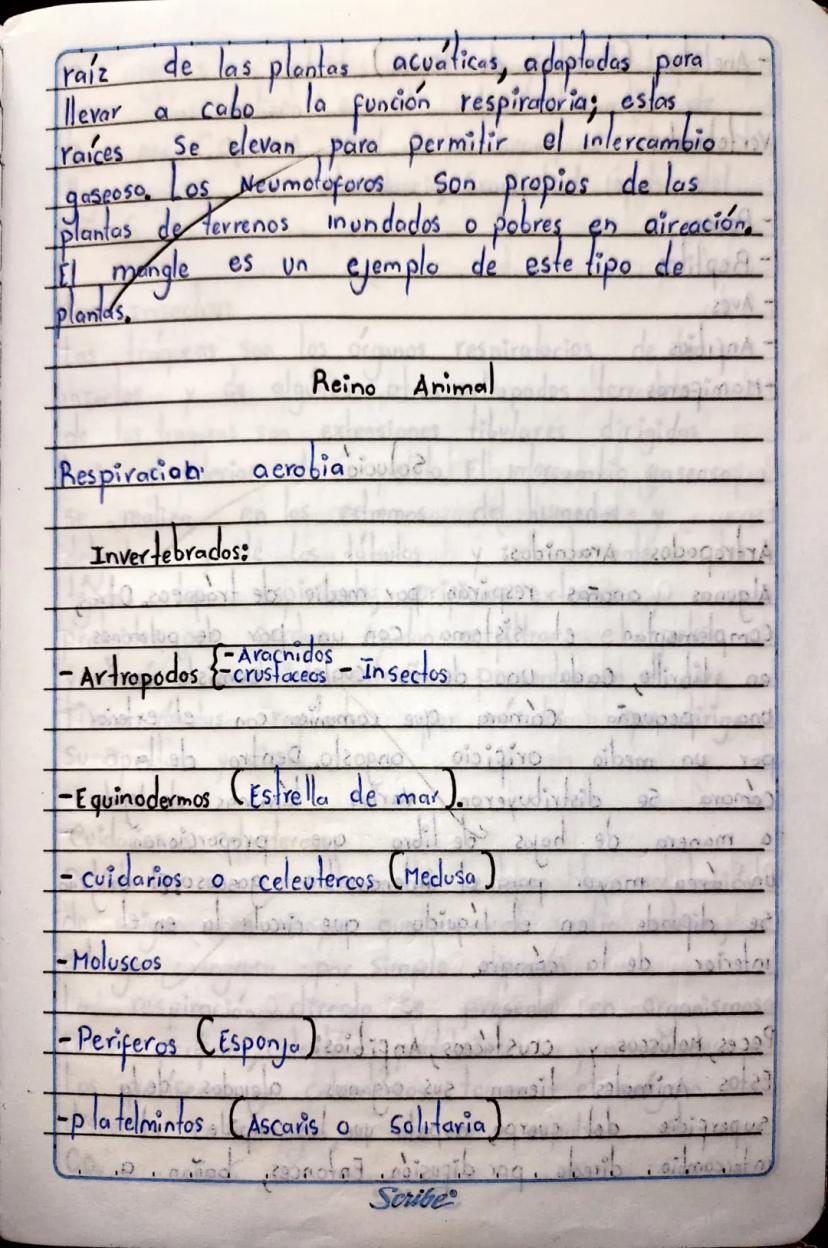 raíz de las plantas acuáticas, adaptadas para
llevar a cabo la función respiratoria; estas
raíces se elevan para permitir el intercambio
gaseoso. Los Neumotóforos son propios de las
plantas de terrenos inundados o pobres en aireación.
El mangle es un ejemplo de este tipo de
plantas.
Reino Animal
Respiración: aerobia
Invertebrados:
- Artropodos { - Aracnidos
- crustaceos - Insectos
- Equinodermos (Estrella de mar).
- cuidarios o celeutercos (Medusa)
- Moluscos
- Periferos (Esponja)
- platelmintos (Ascaris o Solitaria)
Scribe